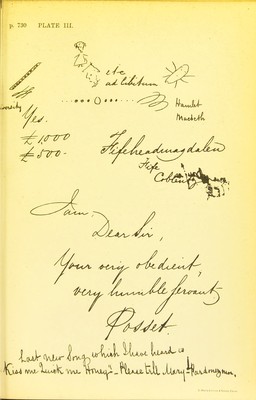 p. 730 PLATE III.
etc
ad libitum
Hamlet
Macbeth
Yes.
£1,000
£500-
Fifeheadmagdalen
Fife
Coburg
I am,
Dear Sir,
Your very obedient,
very humble Servant
Posset.
Last new Song which I have heard is
Kiss me Quick me Honey" - Please tell Mary